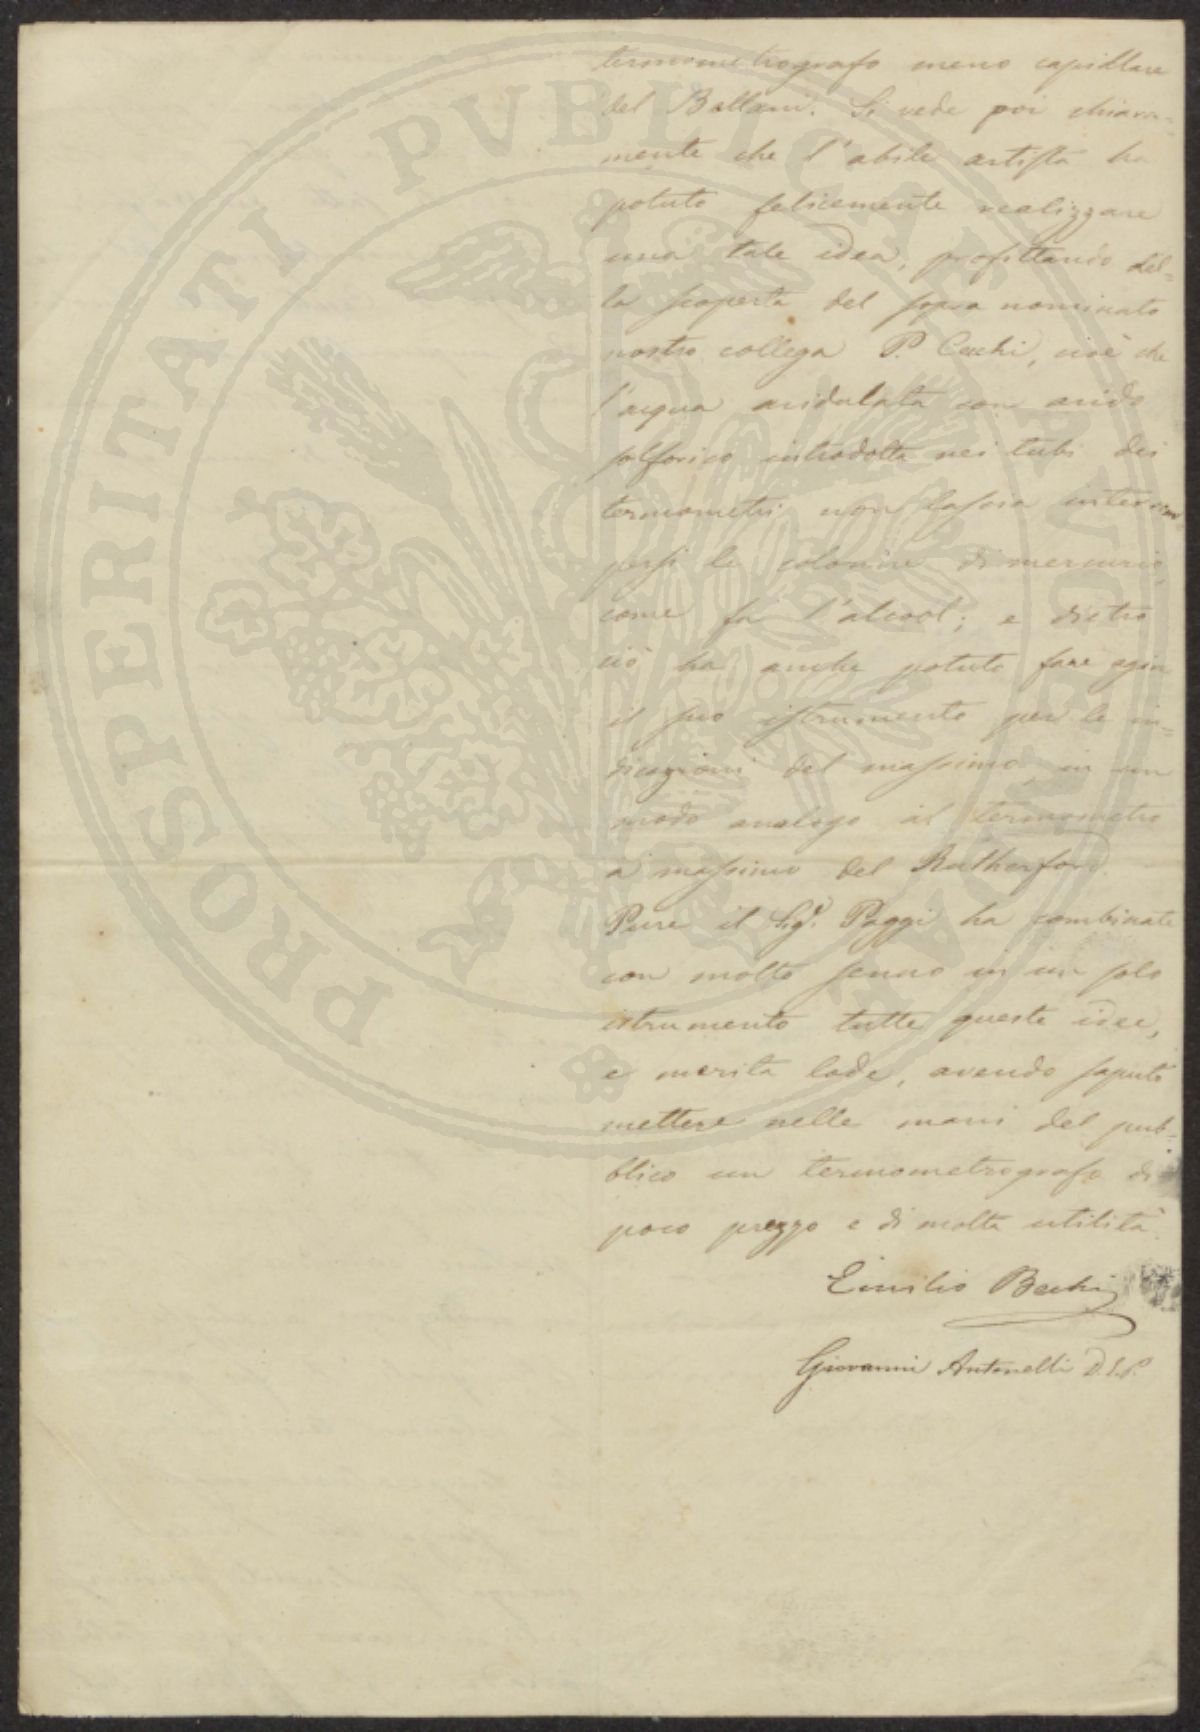 PROSPERITATI PVBLICAE AVGENDAE
termometrografo meno capillare
del Bellani. Si vede poi chiara=
mente che l'abile artista ha
potuto felicemente realizzare
una tale idea, profittando del=
la scoperta del sopra nominato
nostro collega P. Cecchi, cioè che
l'acqua acidulata con acido
solforico introdotta nei tubi dei
termometri non lascia interrom
persi le colonne di mercurio,
come fa l'alcool; e dietro
ciò ha anche potuto fare agire
il suo istrumento per le in=
dicazioni del massimo, in un
modo analogo al termometro
a massimo del Rutherford.
Pure il Sigr. Paggi ha combinate
con molto senno in un solo
istrumento tutte queste idee,
e merita lode, avendo saputo
mettere nelle mani del pub=
blico un termometrografo di
poco prezzo e di molta utilità.
Emilio Bechi
Giovanni Antonelli D.S.P.